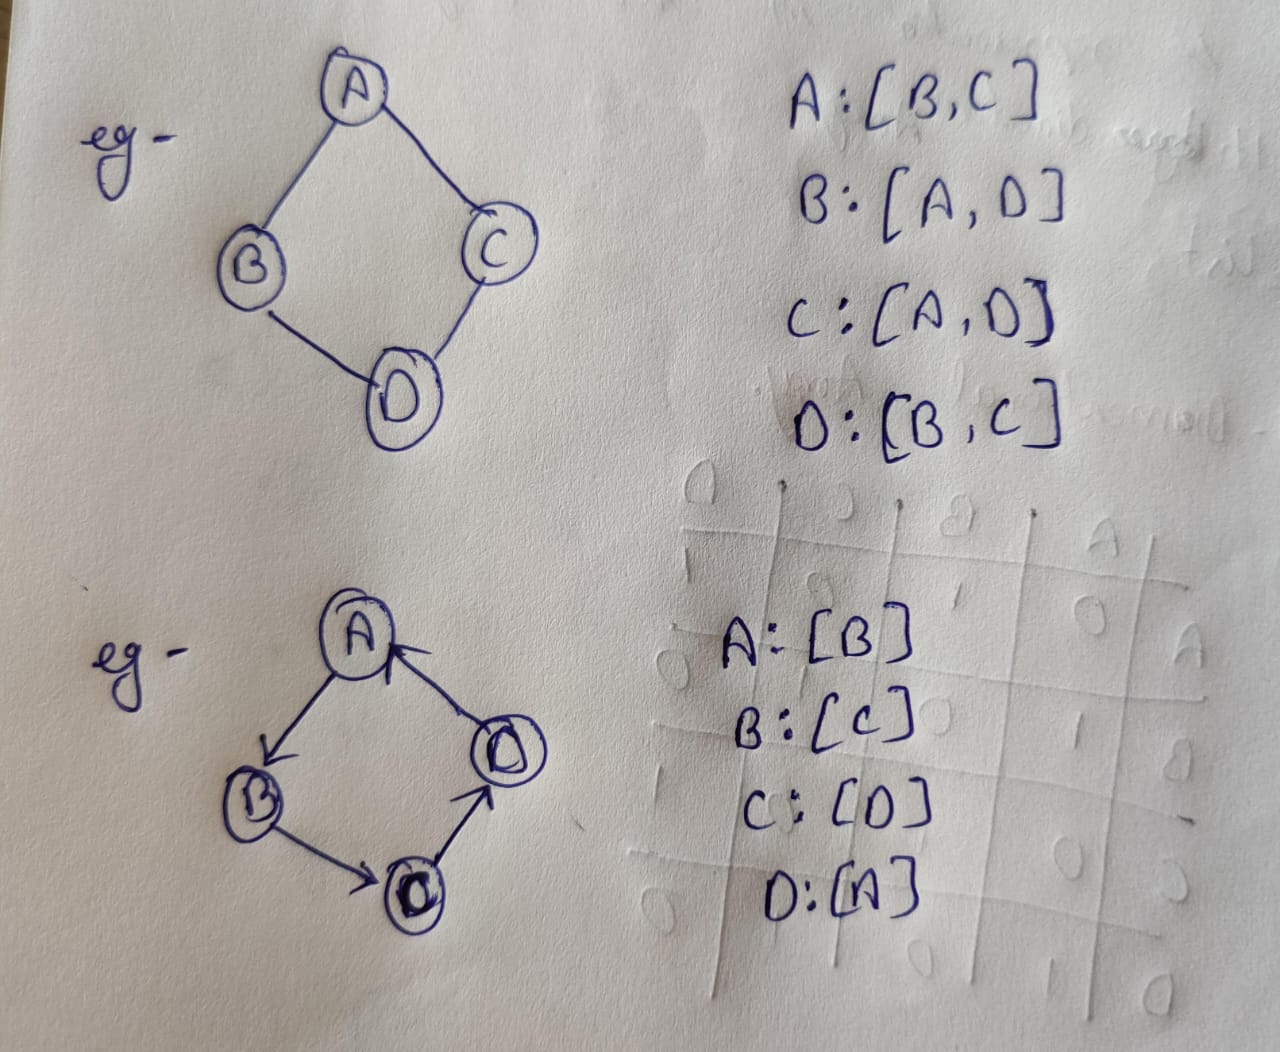 eg-
A
B
C
D
A:[B,C]
B:[A,D]
C:[A,D]
D:[B,C]
eg-
A
B
D
C
A:[B]
B:[C]
C:[D]
D:[A]